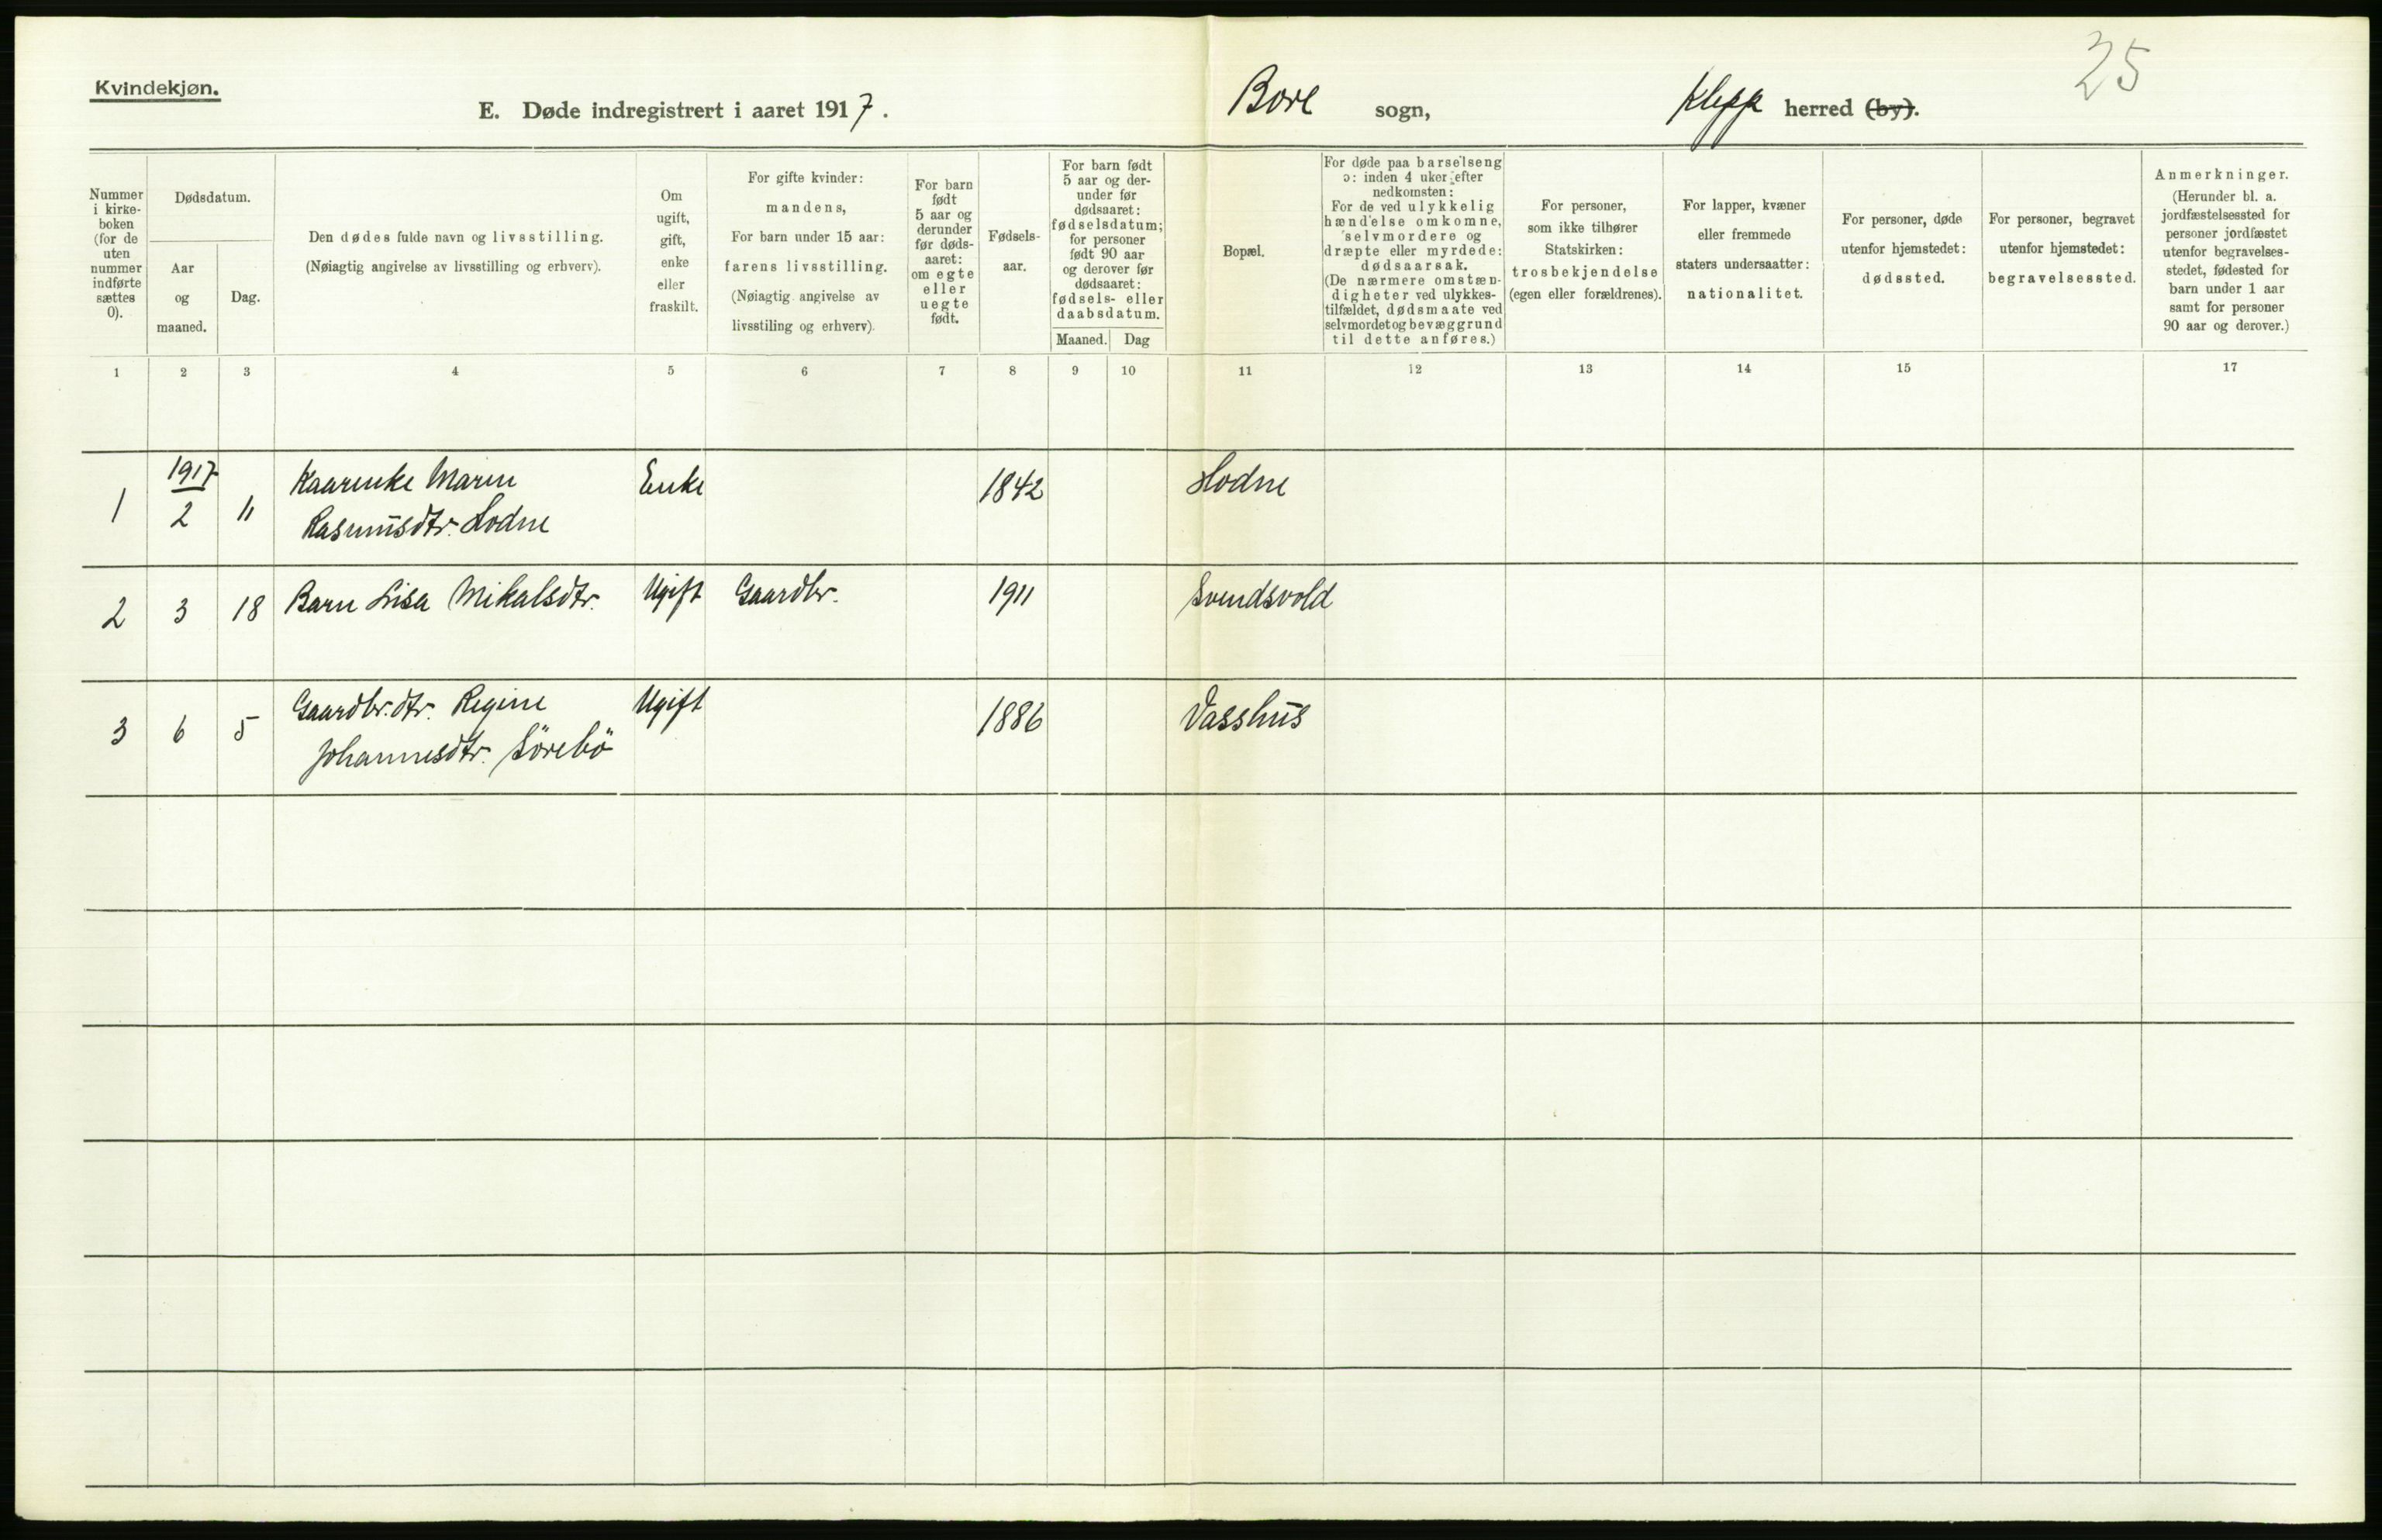 Kvindekjøn.
E. Døde indregistrert i aaret 1917.
Bore sogn, Klepp herred (by).
25
Nummer i kirke-boken (for de uten nummer indførte sættes 0).
Dødsdatum.
Aar og maaned.
Dag.
Den dødes fulde navn og livsstilling.
(Nøiagtig angivelse av livsstilling og erhverv).
Om ugift, gift, enke eller fraskilt.
For gifte kvinder:
mandens,
For barn under 15 aar:
farens livsstilling.
(Nøiagtig angivelse av
livsstiling og erhverv).
For barn
født
5 aar og
derunder
før døds-
aaret:
om egte
eller
uegte
født.
Fødsels-
aar.
For barn født
5 aar og der-
under før
dødsaaret:
fødselsdatum;
for personer
født 90 aar
og derover før
dødsaaret:
fødsels- eller
daabsdatum.
Maaned. Dag
Bopæl.
For døde paa barselseng
ɔ: inden 4 uker efter
nedkomsten:
For de ved ulykkelig
hændelse omkomne,
selvmordere og
dræpte eller myrdede:
dødsaarsak.
(De nærmere omstæn-
digheter ved ulykkes-
tilfældet, dødsmaate ved
selvmordet og bevæggrund
til dette anføres.)
For personer,
som ikke tilhører
Statskirken:
trosbekjendelse
(egen eller forældrenes).
For lapper, kvæner
eller fremmede
staters undersaatter:
nationalitet.
For personer, døde
utenfor hjemstedet:
dødssted.
For personer, begravet
utenfor hjemstedet:
begravelsessted.
Anmerkninger.
(Herunder bl. a.
jordfæstelsessted for
personer jordfæstet
utenfor begravelses-
stedet, fødested for
barn under 1 aar
samt for personer
90 aar og derover.)
1 2 3 4 5 6 7 8 9 10 11 12 13 14 15 17
1 1917 2 11 Kaarenke Maren Enke 1842 Hodne
Rasmusdtr. Hodne
2 3 18 Barn Lisa Mikalsdtr. Ugift Gaardbr. 1911 Svendsvold
3 6 5 Gaardbr.dtr. Regine Ugift 1886 Vasshus
Johannesdtr. Sörebö